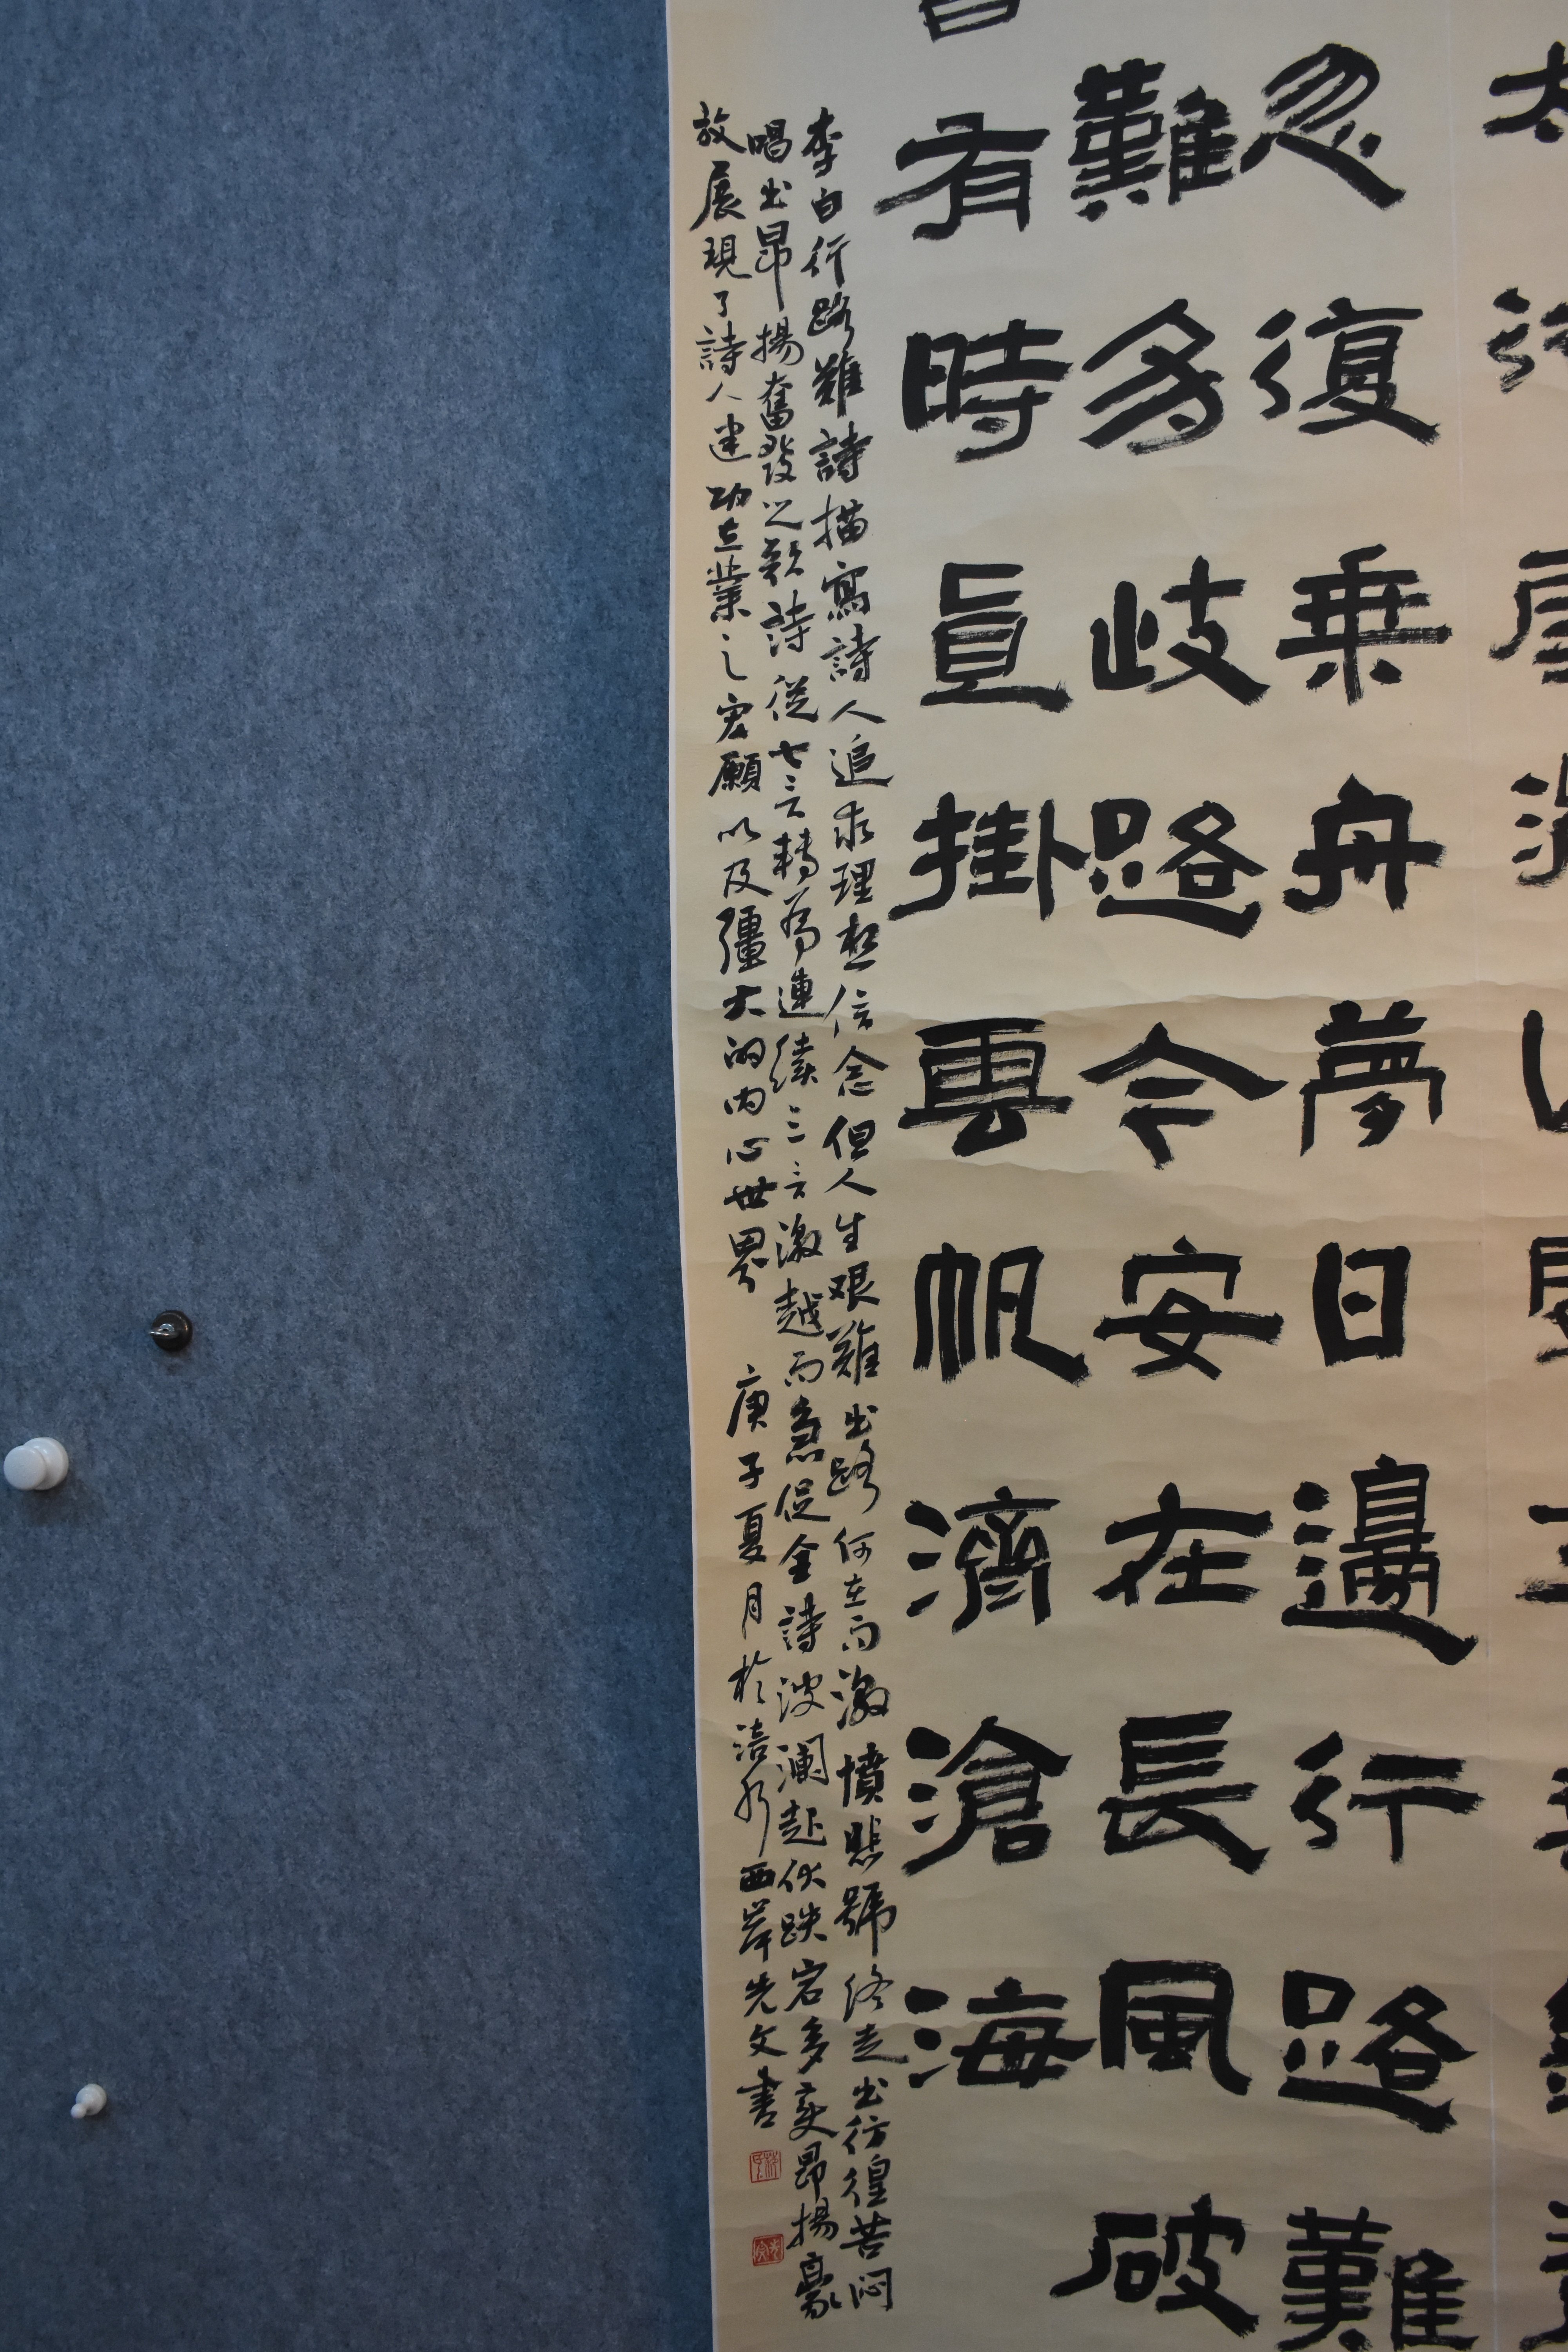 忽復乗舟夢日邊行路難
難多岐路今安在長風破
有時直掛雲帆濟滄海
李白行路難詩描寫詩人追求理想信念但人生艰難出路何在而激憤悲號终走出彷徨苦闷
唱出昂揚奮發之歌詩從七言轉為連續三言激越而急促全詩波澜起伏跌宕多变昂揚豪
放展現了詩人建功立業之宏願以及彊大的内心世界 庚子夏月於涪水西岸先文書